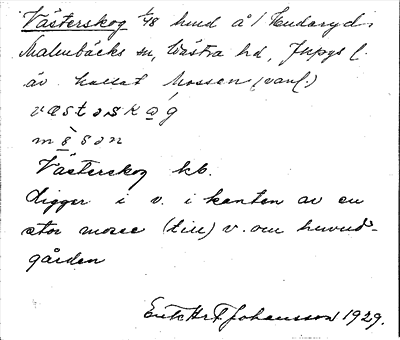 Västerskog 1/48 hmd å / Hudaryd,
Malmbäcks sn, Västra hd, Jkpgs l.
äv. kallat Mossen (vanl.)
væstəskog
mòsən
Västerskog kb.
Ligger i v. i kanten av en
stor mosse (till) v. om huvud-
gården
Erik Hrf. Johansson 1929.